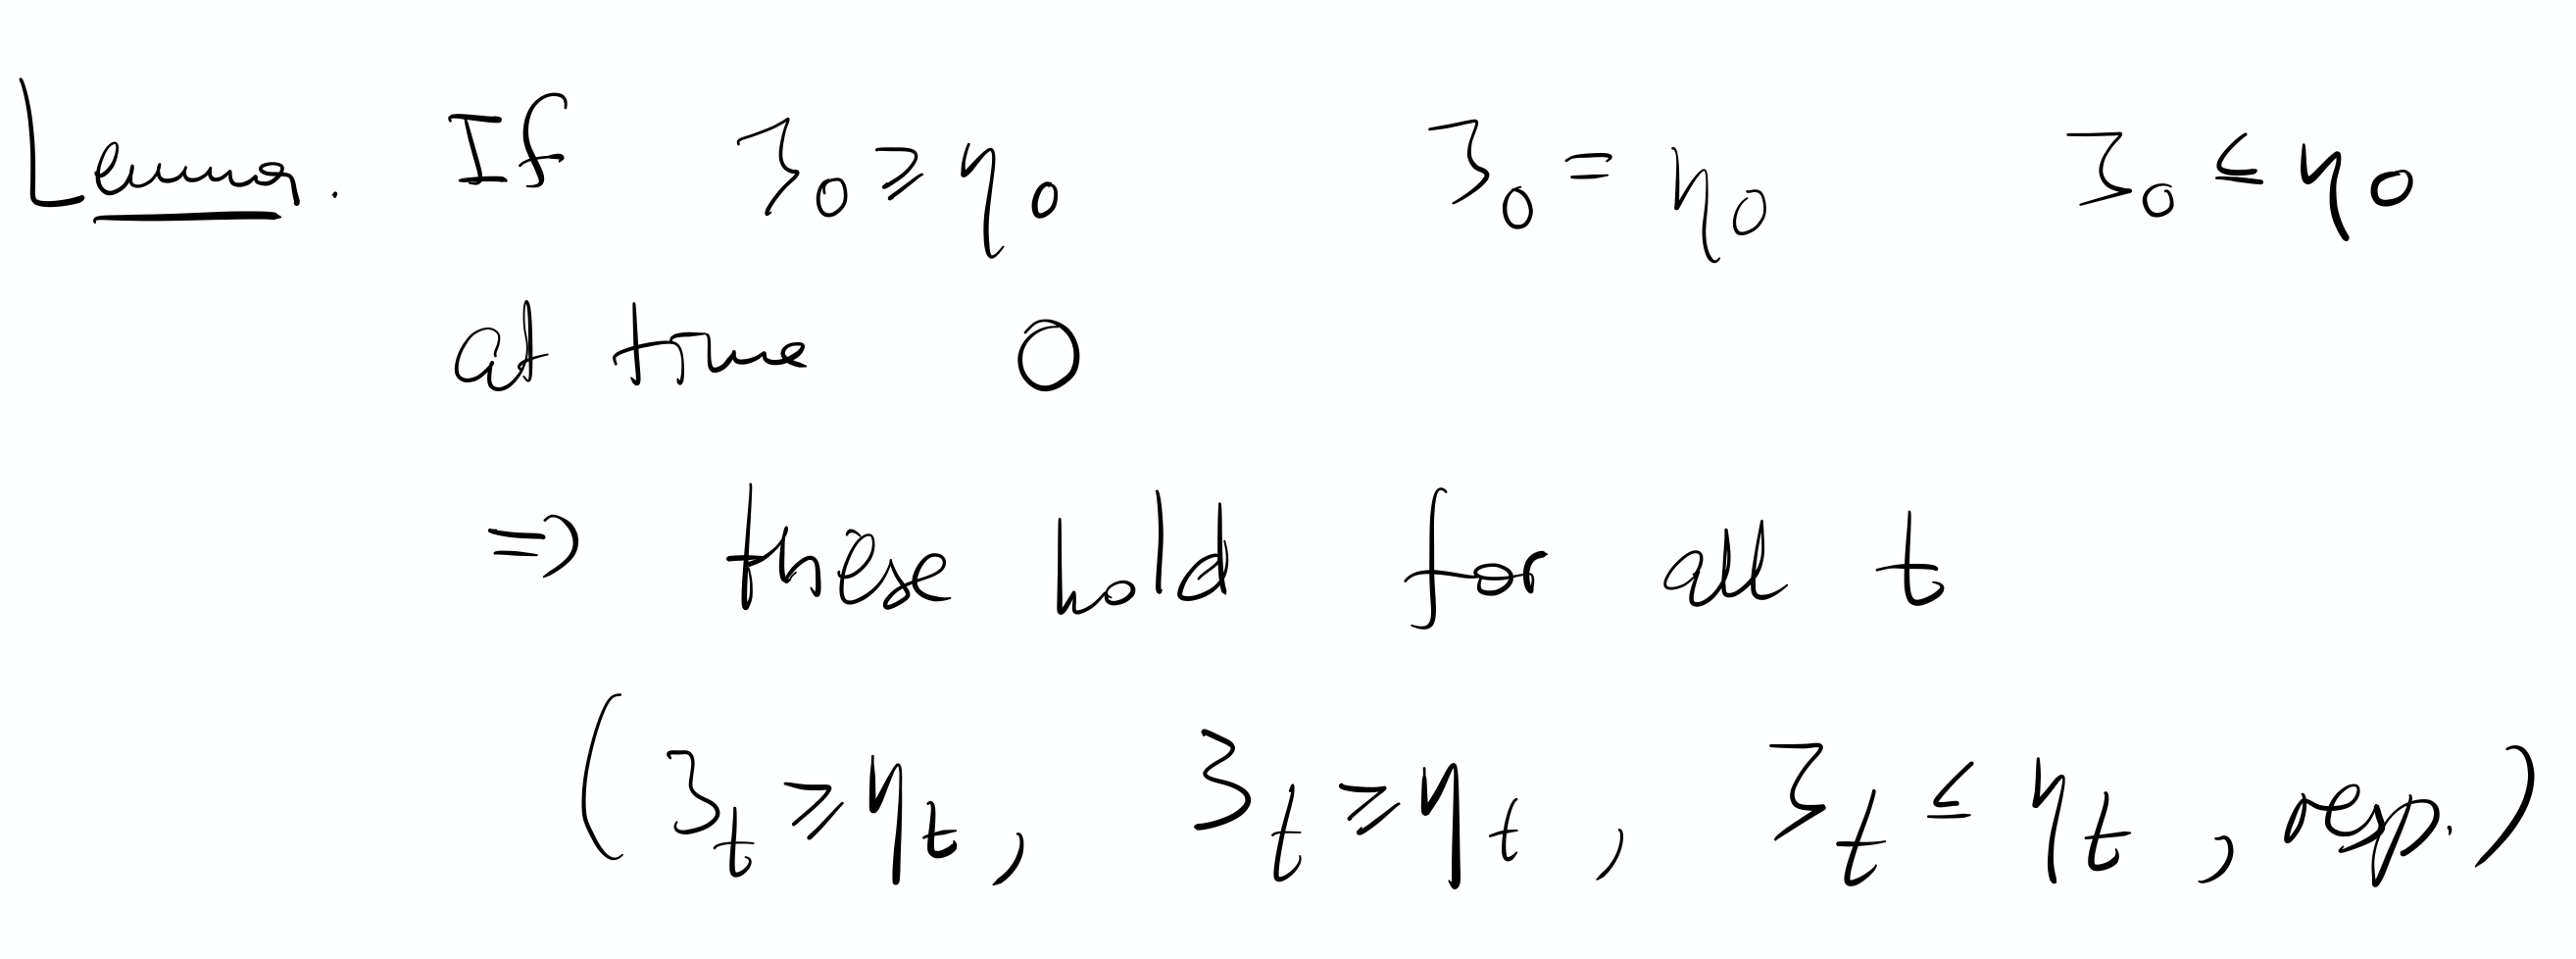 Lemma. If ξ₀ ≥ η₀ ξ₀ = η₀ ξ₀ ≤ η₀
at time 0
⇒ these hold for all t
(ξₜ ≥ ηₜ, ξₜ ≥ ηₜ, ξₜ ≤ ηₜ, resp.)